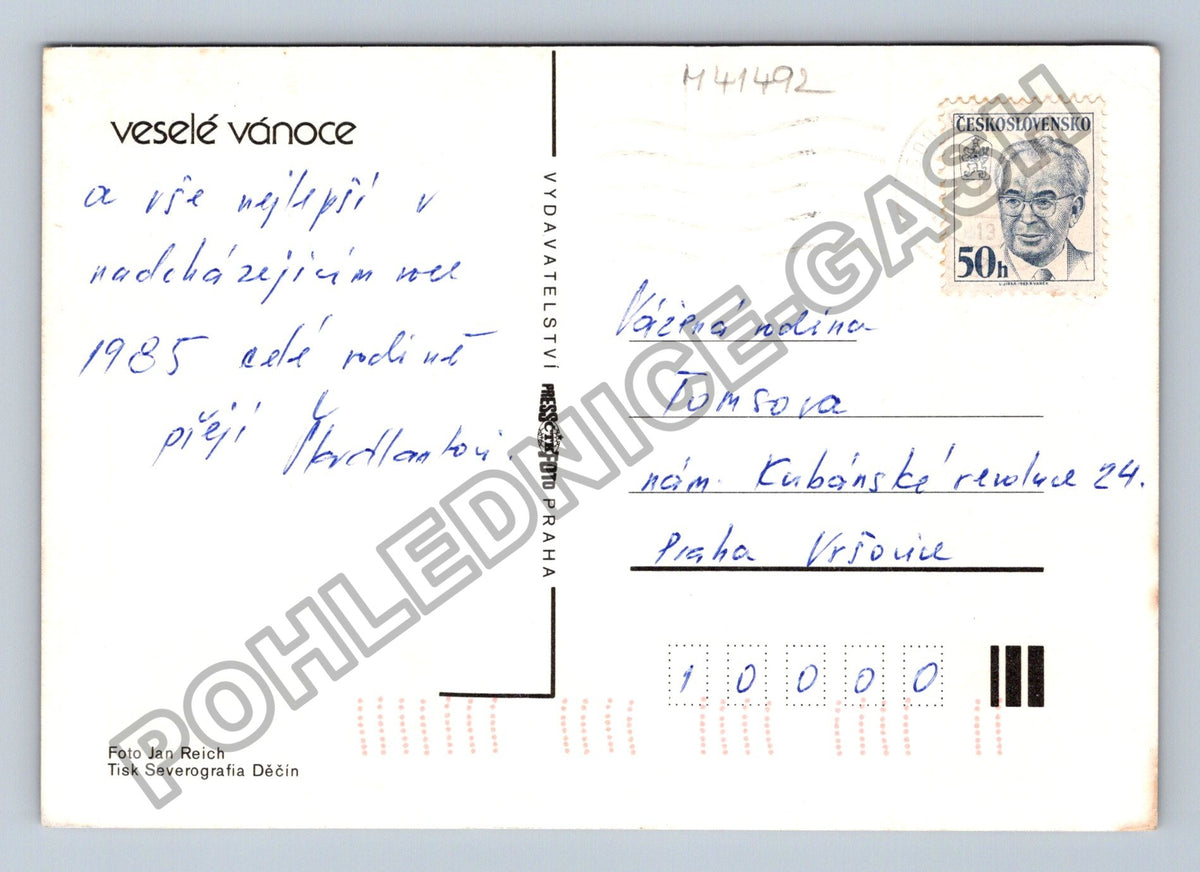 veselé vánoce
a vše nejlepší v
nadcházejícím roce
1985 celé rodině
přejí
Foto Jan Reich
Tisk Severografia Děčín
VYDAVATELSTVÍ PRESSFOTO PRAHA
ČTK
M41492
ČESKOSLOVENSKO
50h
13
Vážená rodina
Tomsova
nám. Kubánské revoluce 24.
Praha Vršovice
10000
POHLEDNICE-GASH